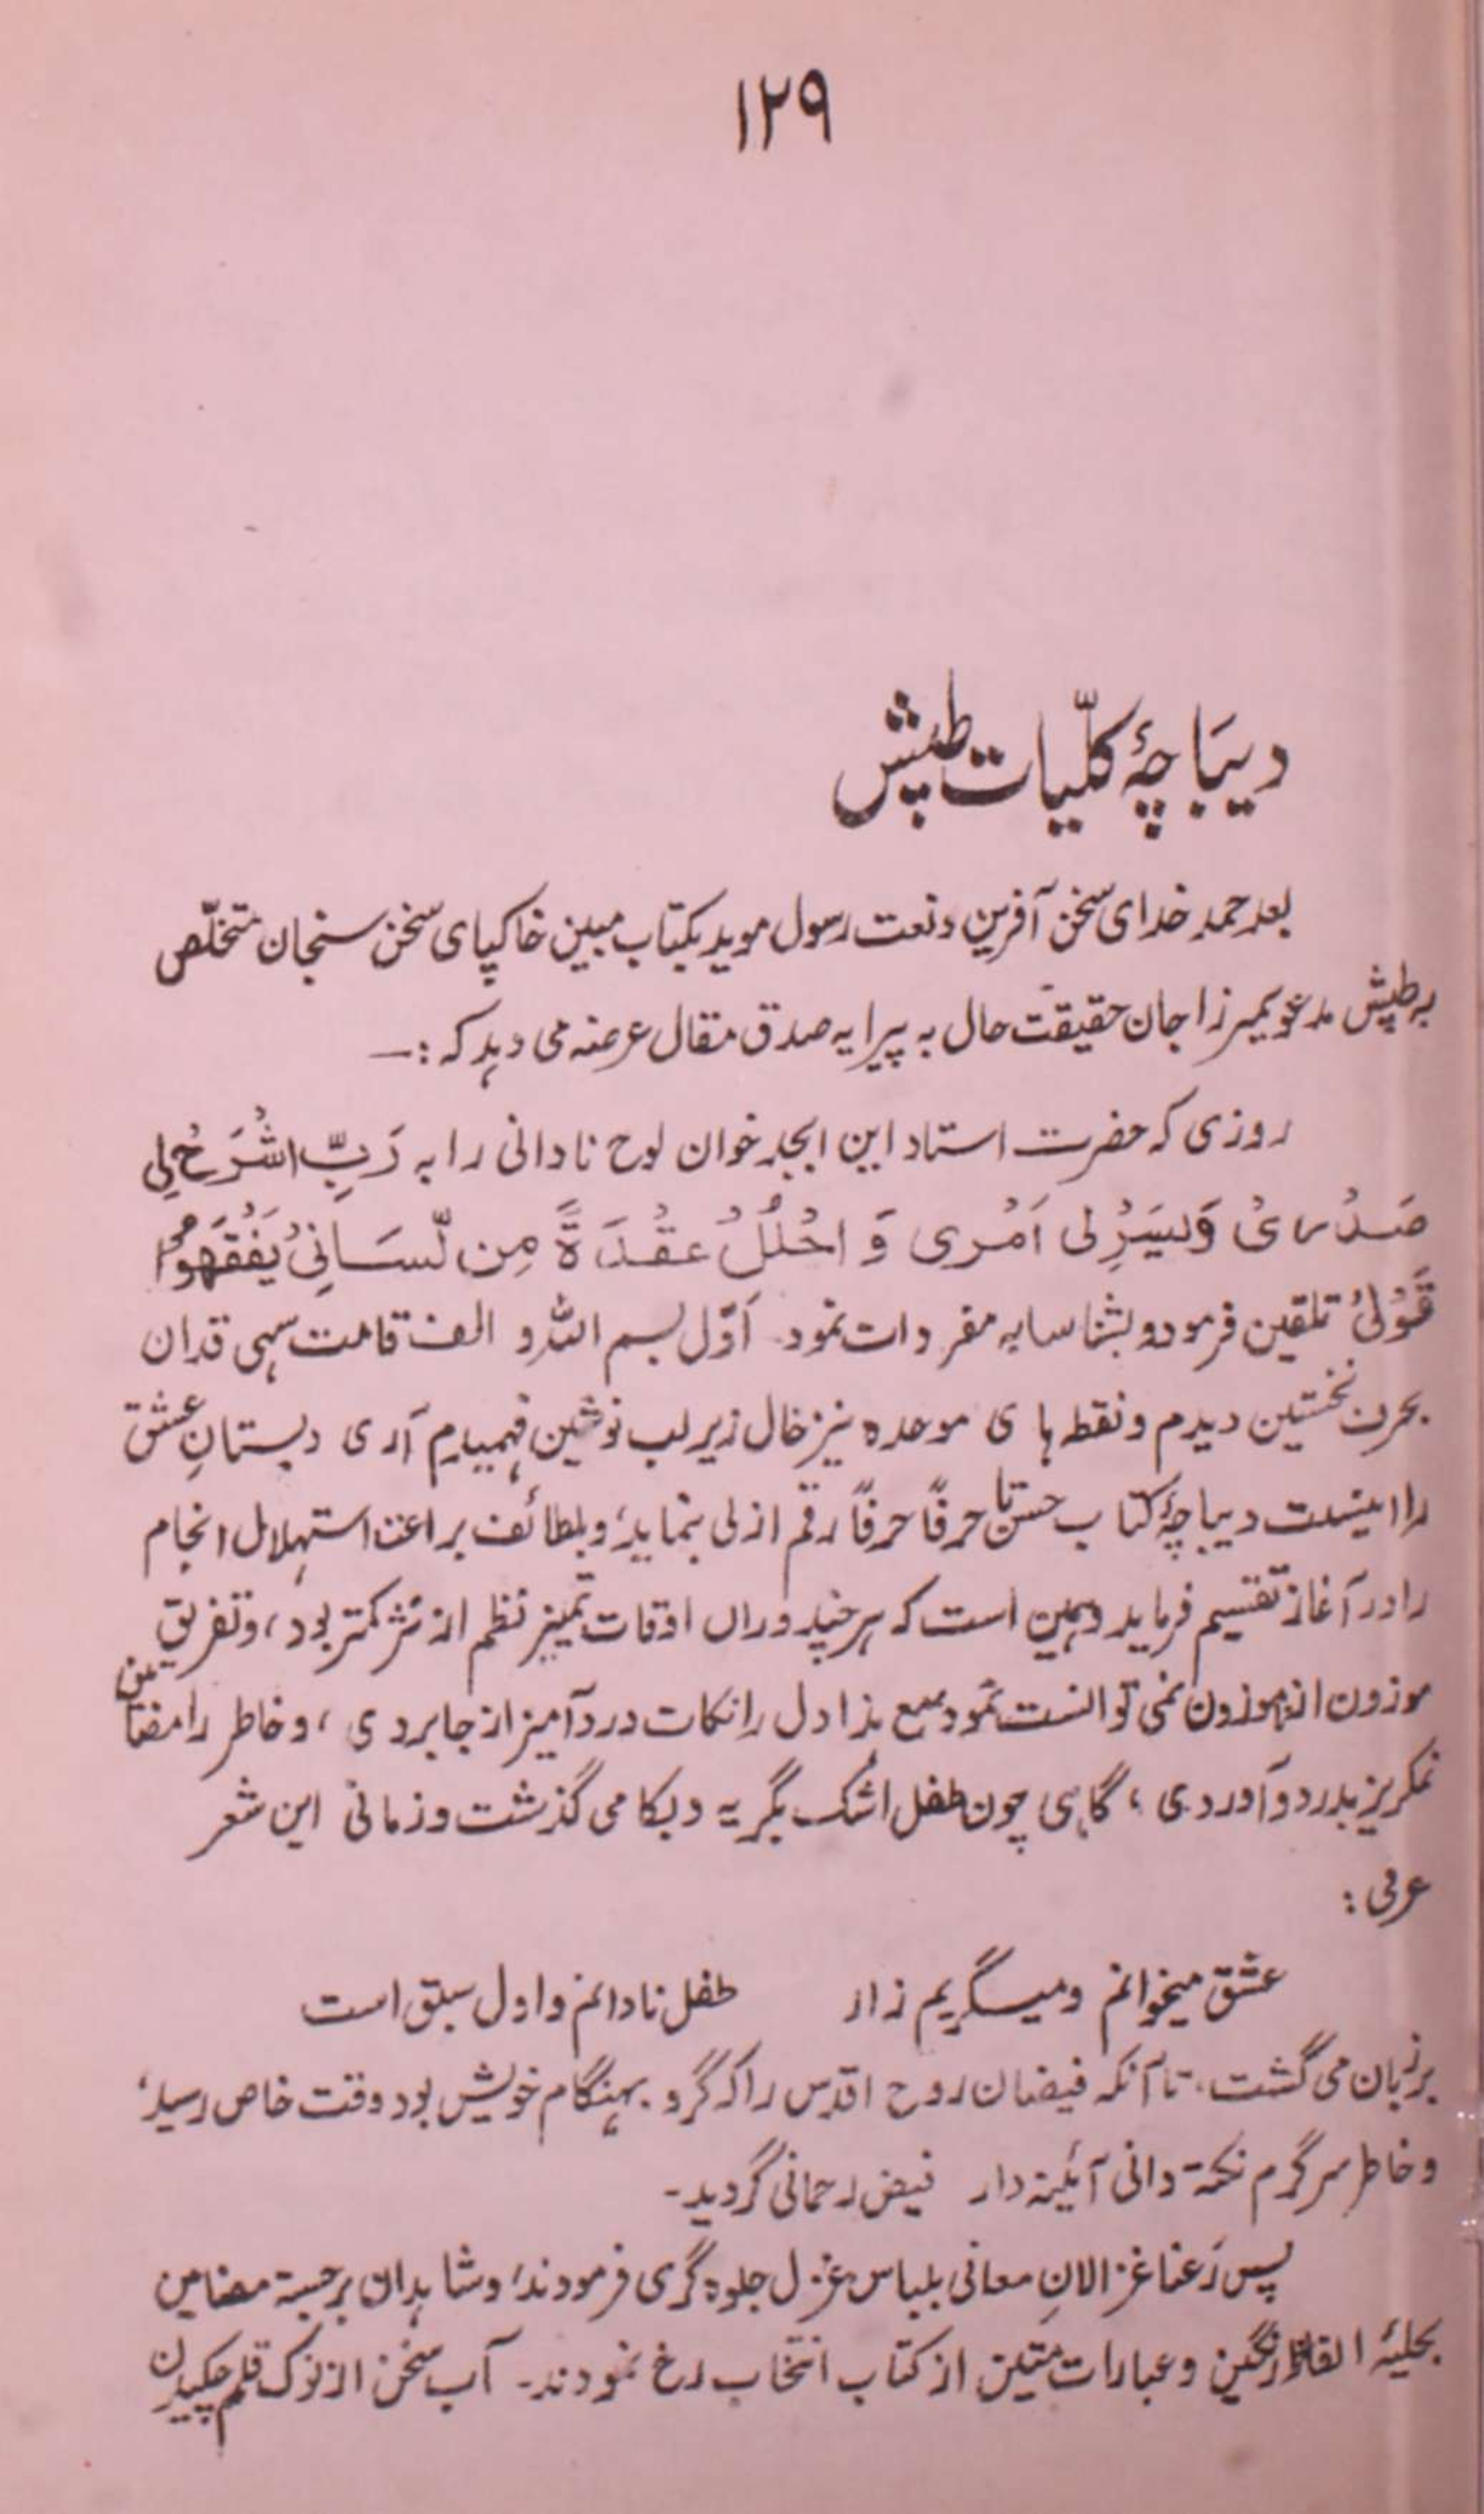 ۱۲۹
دیباچۂ کلّیات طپش
بعد حمد خدای سخن آفرین و نعت رسول موید بکتاب مبین خاکپای سخن سنجان متخلّص
بہ طپش مدعو بمیرزا جان حقیقت حال بہ پیرایہ صدق مقال عرضہ می دہد کہ :—
روزی کہ حضرت استاد این ابجد خوان لوح نادانی را بہ رَبِّ اشْرَحْ لِی
صَدْرِیْ وَیَسِّرْلی اَمْری وَ احْلُلْ عقْدَةً مِن لّسَانِیْ یَفْقَهُوْا
قَوْلیْ تلقین فرمود و بشناسایہ مفردات نمود۔ اَوّل بسم اللہ و الف قامت سہی قدان
بحرف نخستین دیدم و نقطہ ہا ی موحدہ نیز خال زیر لب نوشین فہمیدم آری دبستانِ عشق
را اینست دیباچۂ کتاب حستا حرفاً حرفاً رقم ازلی بنماید، و بلطائف براعت استہلال انجام
را در آغاز تقسیم فرماید و ہمین است کہ ہر چند دوراں اوقات تمیز نظم از نثر کمتر بود، و تفریق
موزون از نہموزون نمی توانست نمود مع ہذا دل را نکات درد آمیز از جا بردی ، و خاطر را مضامین
نمکریز بدرد و آوردی ، گاہی چون طفل اشک بگریہ و بکا می گذشت و زمانی این شعر
عرفی :
عشق میخوانم و میگریم زار طفل نادانم و اول سبق است
بر زبان می گشت، تا آنکہ فیضان روح اقدس را کہ گرو بہنگام خویش بود وقت خاص رسید،
و خاطر سرگرم نکتہ دانی آئینہ دار فیض رحمانی گردید۔
پس رَعنا غزالانِ معانی بلباس غزل جلوہ گری فرمودند، و شاہدان برجستہ مضامین
بحلیۂ الفاظ رنگین و عبارات متین از کتاب انتخاب رخ نمودند۔ آب سخن از نوک قلم چکیدن